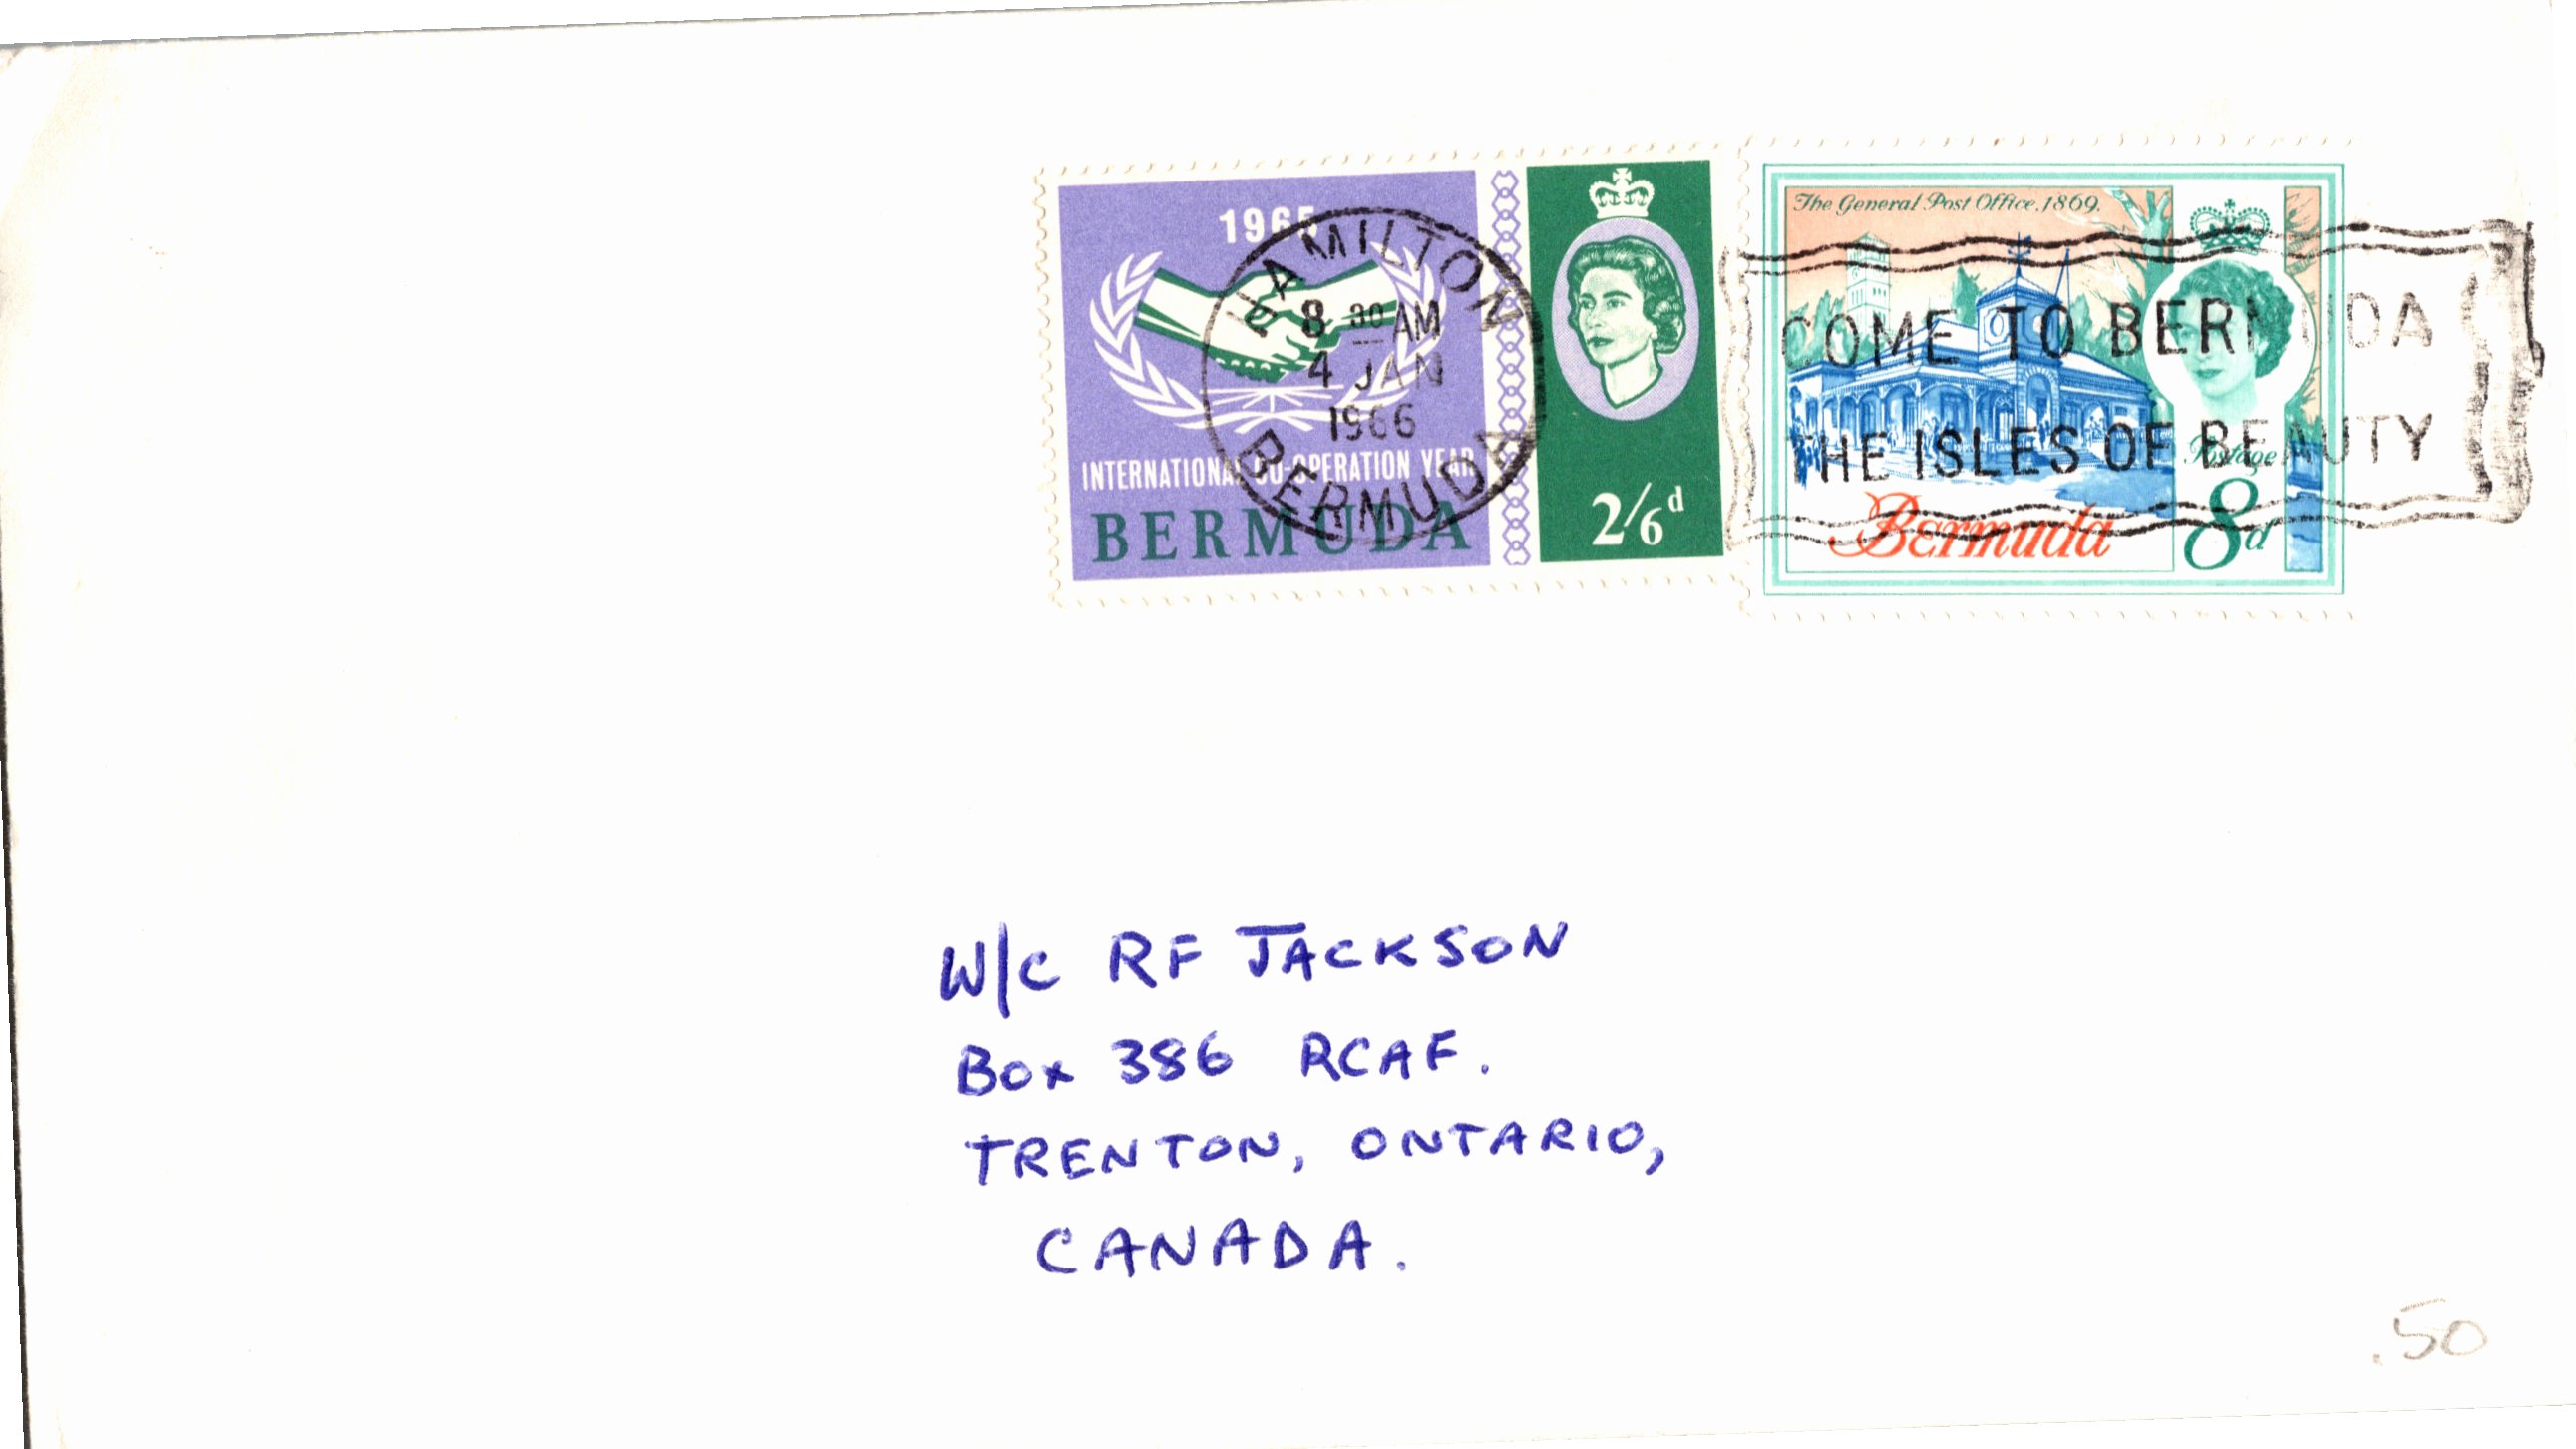 1965
INTERNATIONAL CO-OPERATION YEAR
BERMUDA
2/6d
HAMILTON
8 30 AM
4 JAN
1966
BERMUDA
The General Post Office, 1869.
Postage
Bermuda
8d
COME TO BERMUDA
THE ISLES OF BEAUTY
W/C RF JACKSON
Box 386 RCAF.
TRENTON, ONTARIO,
CANADA.
.50